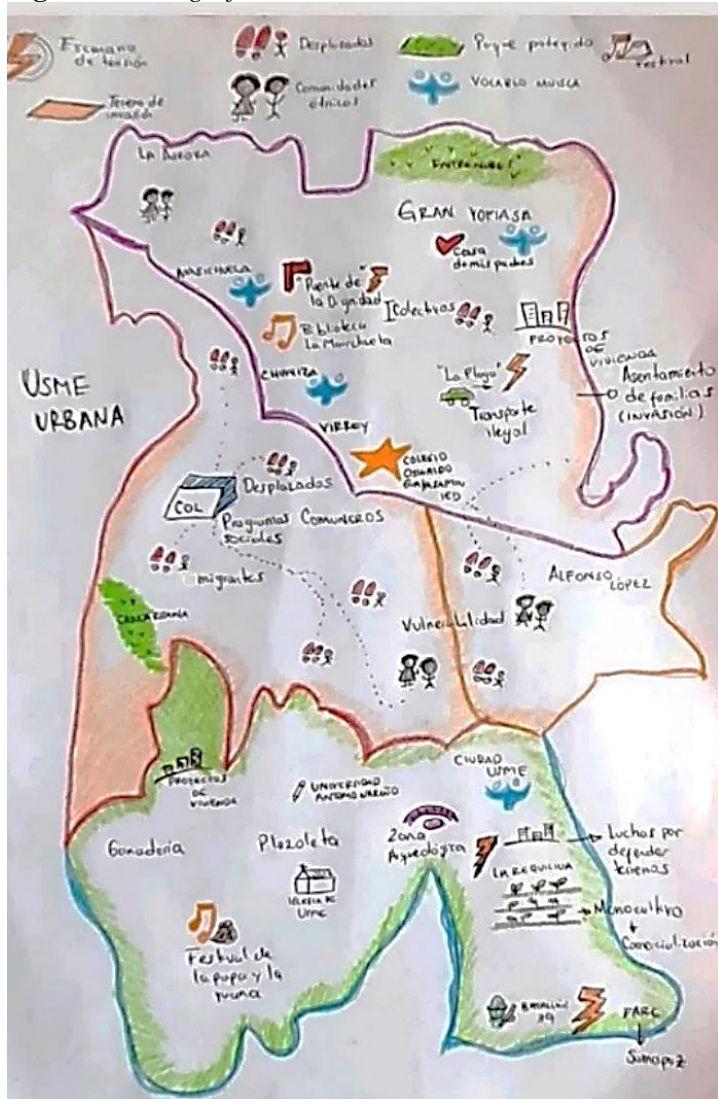 Escenario
de tensión
Desplazados
Parque protegido
Festival
Terreno de
invasión
Comunidades
étnicas
VOCABLO MUISCA
LA AURORA
ENTRENUBES
GRAN YOMASA
Casa
de mis padres
"Puente de
la Dignidad"
Colectivos
Biblioteca
La Marichuela
PROYECTOS
DE
VIVIENDA
Asentamiento
de familias
(INVASIÓN)
"La Playa"
Transporte
ilegal
USME
URBANA
CHUNIZA
VIRREY
COLEGIO
OSWALDO
GUAYASAMIN
IED
COL
Desplazados
Programas
sociales
COMUNEROS
migrantes
ALFONSO
LÓPEZ
Vulnerabilidad
PROYECTOS
DE
VIVIENDA
CIUDAD
USME
UNIVERSIDAD
ANTONIO NARIÑO
Ganadería
Plazoleta
IGLESIA DE
USME
Zona
Arqueológica
LA REQUILINA
Luchas por
defender
terrenos
Monocultivo
Comercialización
Festival de
la papa y la
ruana
BATALLÓN
FARC
Sumapaz